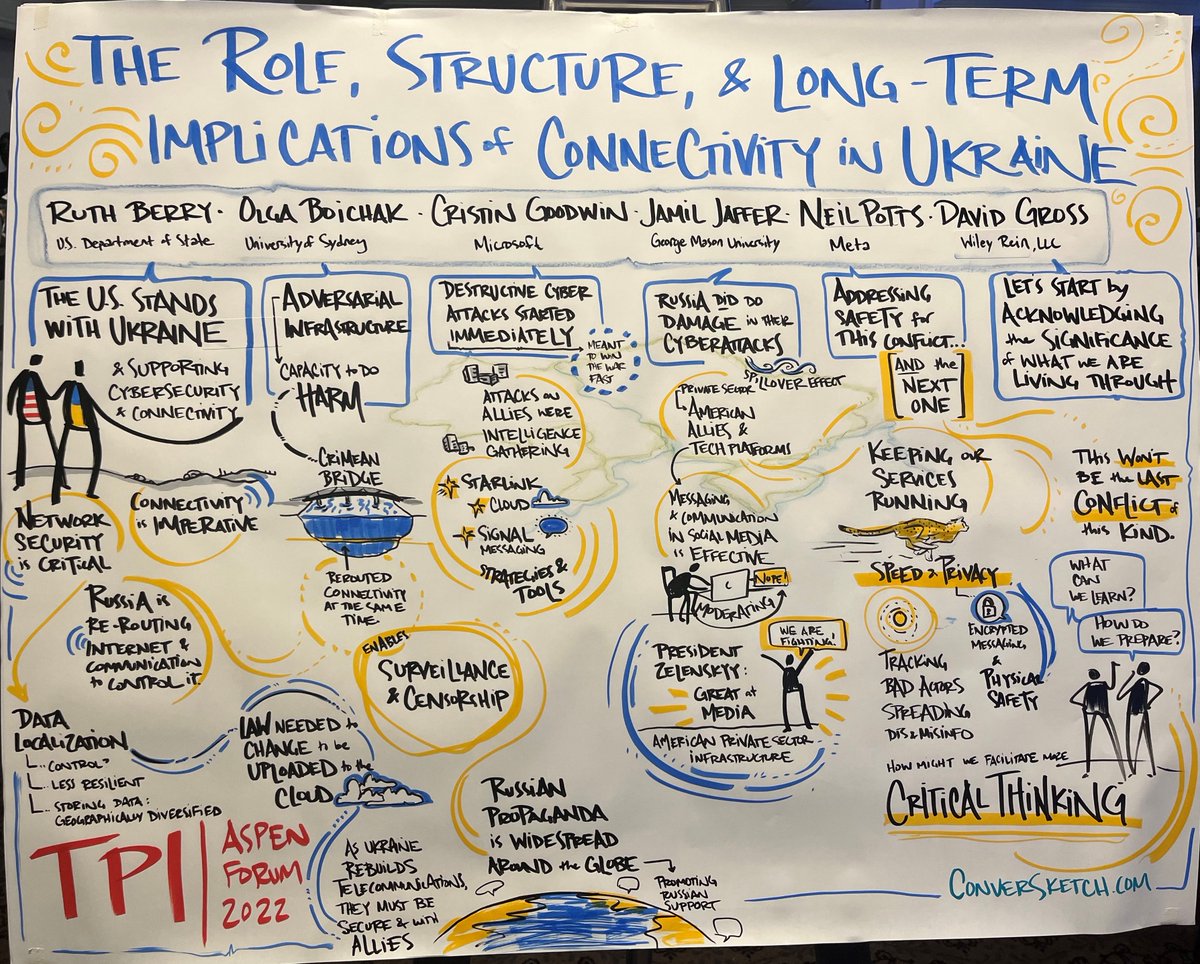 THE ROLE, STRUCTURE, & LONG-TERM
IMPLICATIONS of CONNECTIVITY IN UKRAINE
RUTH BERRY · OLGA BOICHAK · CRISTIN GOODWIN · JAMIL JAFFER · NEIL POTTS · DAVID GROSS
U.S. Department of State University of Sydney Microsoft George Mason University Meta Wiley Rein, LLC
THE U.S. STANDS
WITH UKRAINE
& SUPPORTING
CYBERSECURITY
& CONNECTIVITY
NETWORK
SECURITY
is CRITICAL
CONNECTIVITY
is IMPERATIVE
RUSSIA is
RE-ROUTING
INTERNET &
COMMUNICATION
to CONTROL IT
DATA
LOCALIZATION
CONTROL?
LESS RESILIENT
STORING DATA:
GEOGRAPHICALLY DIVERSIFIED
ADVERSARIAL
INFRASTRUCTURE
CAPACITY to DO
HARM
...CRIMEAN
BRIDGE
REROUTED
CONNECTIVITY
AT THE SAME
TIME
ENABLES
SURVEILLANCE
& CENSORSHIP
LAW NEEDED to
CHANGE to be
UPLOADED to the
CLOUD
AS UKRAINE
REBUILDS
TELECOMMUNICATIONS,
THEY MUST BE
SECURE & WITH
ALLIES
DESTRUCTIVE CYBER
ATTACKS STARTED
IMMEDIATELY
MEANT
TO WIN
THE WAR
FAST
ATTACKS ON
ALLIES WERE
INTELLIGENCE
GATHERING
STARLINK
CLOUD
SIGNAL
MESSAGING
STRATEGIES &
TOOLS
RUSSIAN
PROPAGANDA
is WIDESPREAD
AROUND the GLOBE
PROMOTING
RUSSIAN
SUPPORT
RUSSIA DID DO
DAMAGE in their
CYBERATTACKS
SPILLOVER EFFECT
PRIVATE SECTOR
AMERICAN
ALLIES &
TECH PLATFORMS
MESSAGING
& COMMUNICATION
IN SOCIAL MEDIA
is EFFECTIVE
NOPE!
MODERATING
PRESIDENT
ZELENSKYY:
GREAT at
MEDIA
WE ARE
FIGHTING!
AMERICAN PRIVATE SECTOR
INFRASTRUCTURE
ADDRESSING
SAFETY for
THIS CONFLICT...
AND the
NEXT
ONE
KEEPING OUR
SERVICES
RUNNING
SPEED & PRIVACY
TRACKING
BAD ACTORS
SPREADING
DIS & MISINFO
ENCRYPTED
MESSAGING
&
PHYSICAL
SAFETY
LET'S START by
ACKNOWLEDGING
the SIGNIFICANCE
of WHAT WE ARE
LIVING THROUGH
THIS WON'T
BE the LAST
CONFLICT of
this KIND.
WHAT
CAN
WE LEARN?
HOW DO
WE PREPARE?
HOW MIGHT WE FACILITATE MORE
CRITICAL THINKING
TPI
ASPEN
FORUM
2022
CONVERSKETCH.COM